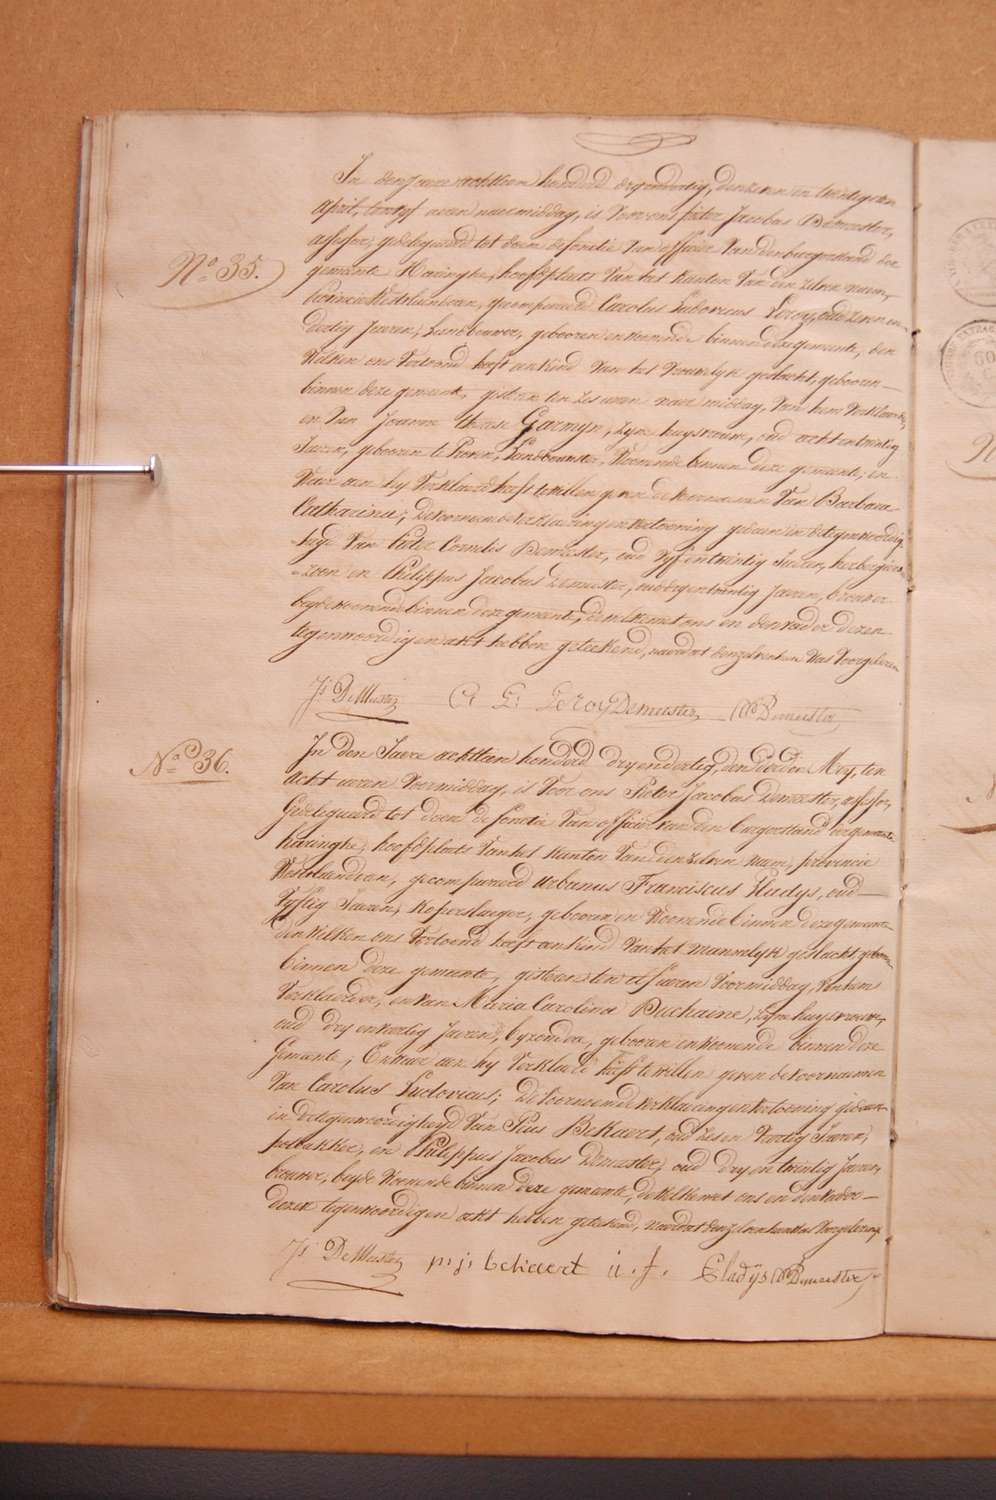 In den Jaere achttien honderd dry en dertig, den zeven en twintigsten
April, ten vyf uren naermiddag, is voor ons Pieter Jacobus Demeester,
assessor, gedelegueerd tot doen de fonctie van officier van den burgerstand der
N.o 35.
gemeente Haringhe, hoofdplaets van het kanton van den zelven naem,
provincie Westvlaenderen, gecompareerd Carolus Ludovicus Leroy, oud zeven en
dertig Jaeren, Landbouwer, gebooren en woonende binnen deze gemeente, den
welken ons vertoond heeft een kind van het vrouwelyk geslacht, gebooren
binnen deze gemeente, gisteren ten zes uren naer middag, van hem verklaerder,
en van Joanna Therese Garmyn, zyne huysvrouw, oud acht en twintig
Jaeren, gebooren te Proven, Landbouwster, woonende binnen deze gemeente, en
waer aen hy verklaerd heeft te willen geven de voornaemen van Barbara
Catharina; de voornoemde verklaering en vertooning gedaen in de tegenwoordig-
heyd van Pieter Cornelis Demeester, oud vyf en twintig Jaeren, herbergier,
zoon en Philippus Jacobus Demeester, oud dry en twintig Jaeren, brouwer
beyde woonende binnen deze gemeente, de welke met ons en den vader dezen
tegenwoordigen akt hebben geteekend, naer dat hun zelven was voorgelezen
Js DeMeester C L Leroy Demeester Ph Demeester
N.o 36.
In den Jaere achttien honderd dry en dertig, den derden Mey, ten
acht uren voormiddag, is voor ons Pieter Jacobus Demeester, assessor,
Gedelegueerd tot doen de fonctie van officier van den burgerstand der gemeente
haringhe, hoofdplaets van het kanton van den zelven naem, provincie
Westvlaenderen, gecompareerd Urbanus Franciscus Cladys, oud
vyftig Jaeren, koperslaeger, gebooren en woonende binnen deze gemeente
den welken ons vertoond heeft een kind van het mannelyk geslacht, gebooren
binnen deze gemeente, gisteren ten elf uren voormiddag, van hem
verklaerder, en van Maria Carolina Duchaine, zyne huysvrouw,
oud dry en veertig Jaeren, byzondere, gebooren en woonende binnen deze
Gemeente; En waer aen hy verklaerd heeft te willen geven de voornaemen
van Carolus Ludovicus; de voornoemde verklaering en vertooning gedaen
in de tegenwoordigheyd van Pius Bekaert, oud zes en veertig Jaeren,
pottebakker, en Philippus Jacobus Demeester, oud dry en twintig Jaeren,
brouwer, beyde woonende binnen deze gemeente, de welke met ons en den vader
dezen tegenwoordigen akt hebben geteekend, naer dat hun zelven was voorgelezen
Js DeMeester p. j. bekaert u. f. Cladÿs Ph Demeester